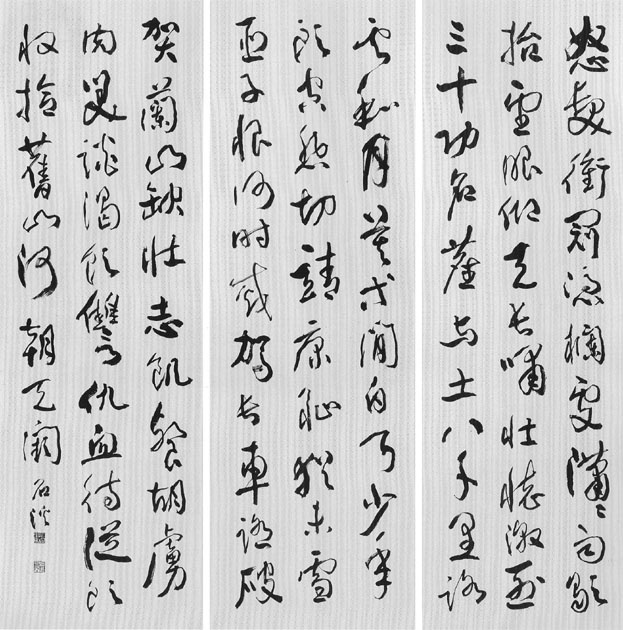 怒髮衝冠憑欄處瀟瀟雨歇
抬望眼仰天長嘯壯懷激烈
三十功名塵與土八千里路
雲和月莫等閒白了少年
頭空悲切靖康恥猶未雪
臣子恨何時滅駕長車踏破
賀蘭山缺壯志飢餐胡虜
肉笑談渴飲讐仇血待從頭
收拾舊山河朝天闕